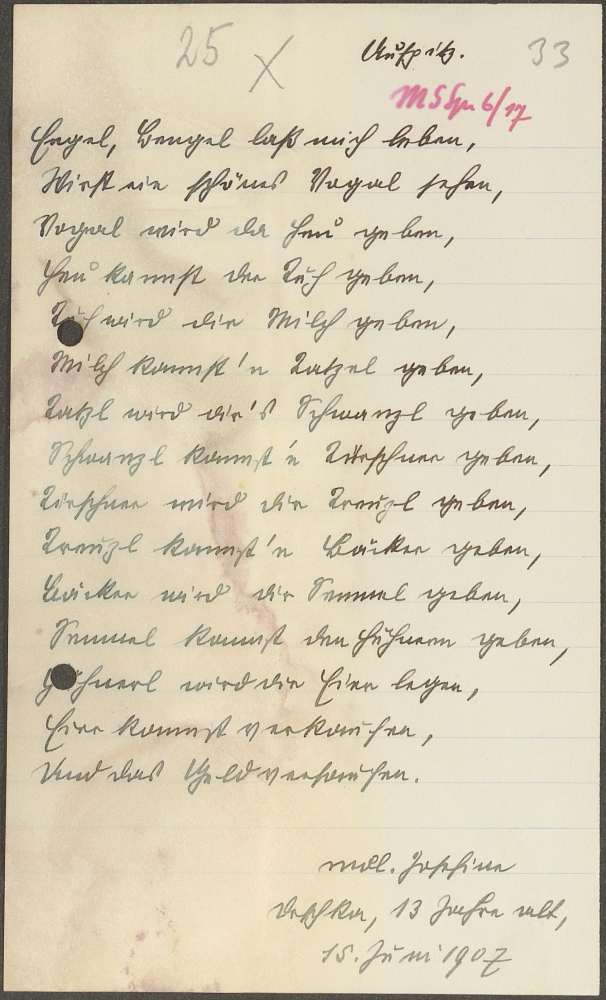 25 Auspitz. 33
MS Spr 6/17
Engel, Bengel laß mich leben,
Wirst ein schönes Vogal sehen,
Vogal wird da Heu geben,
Heu kannst der Kuh geben,
Kuh wird dir Milch geben,
Milch kannst'n Katzel geben,
Katzl wird dir's Schwanzl geben,
Schwanzl kannst'n Kürschner geben,
Kürschner wird dir Kreuzl geben,
Kreuzl kannst'n Bäcker geben,
Bäcker wird dir Semmel geben,
Semmel kannst den Hühnern geben,
wird dir Eier legen,
Eier kannst verkaufen,
Und das Geld versaufen.
mdl. Josefine
13 Jahre alt,
15. Juni 1907